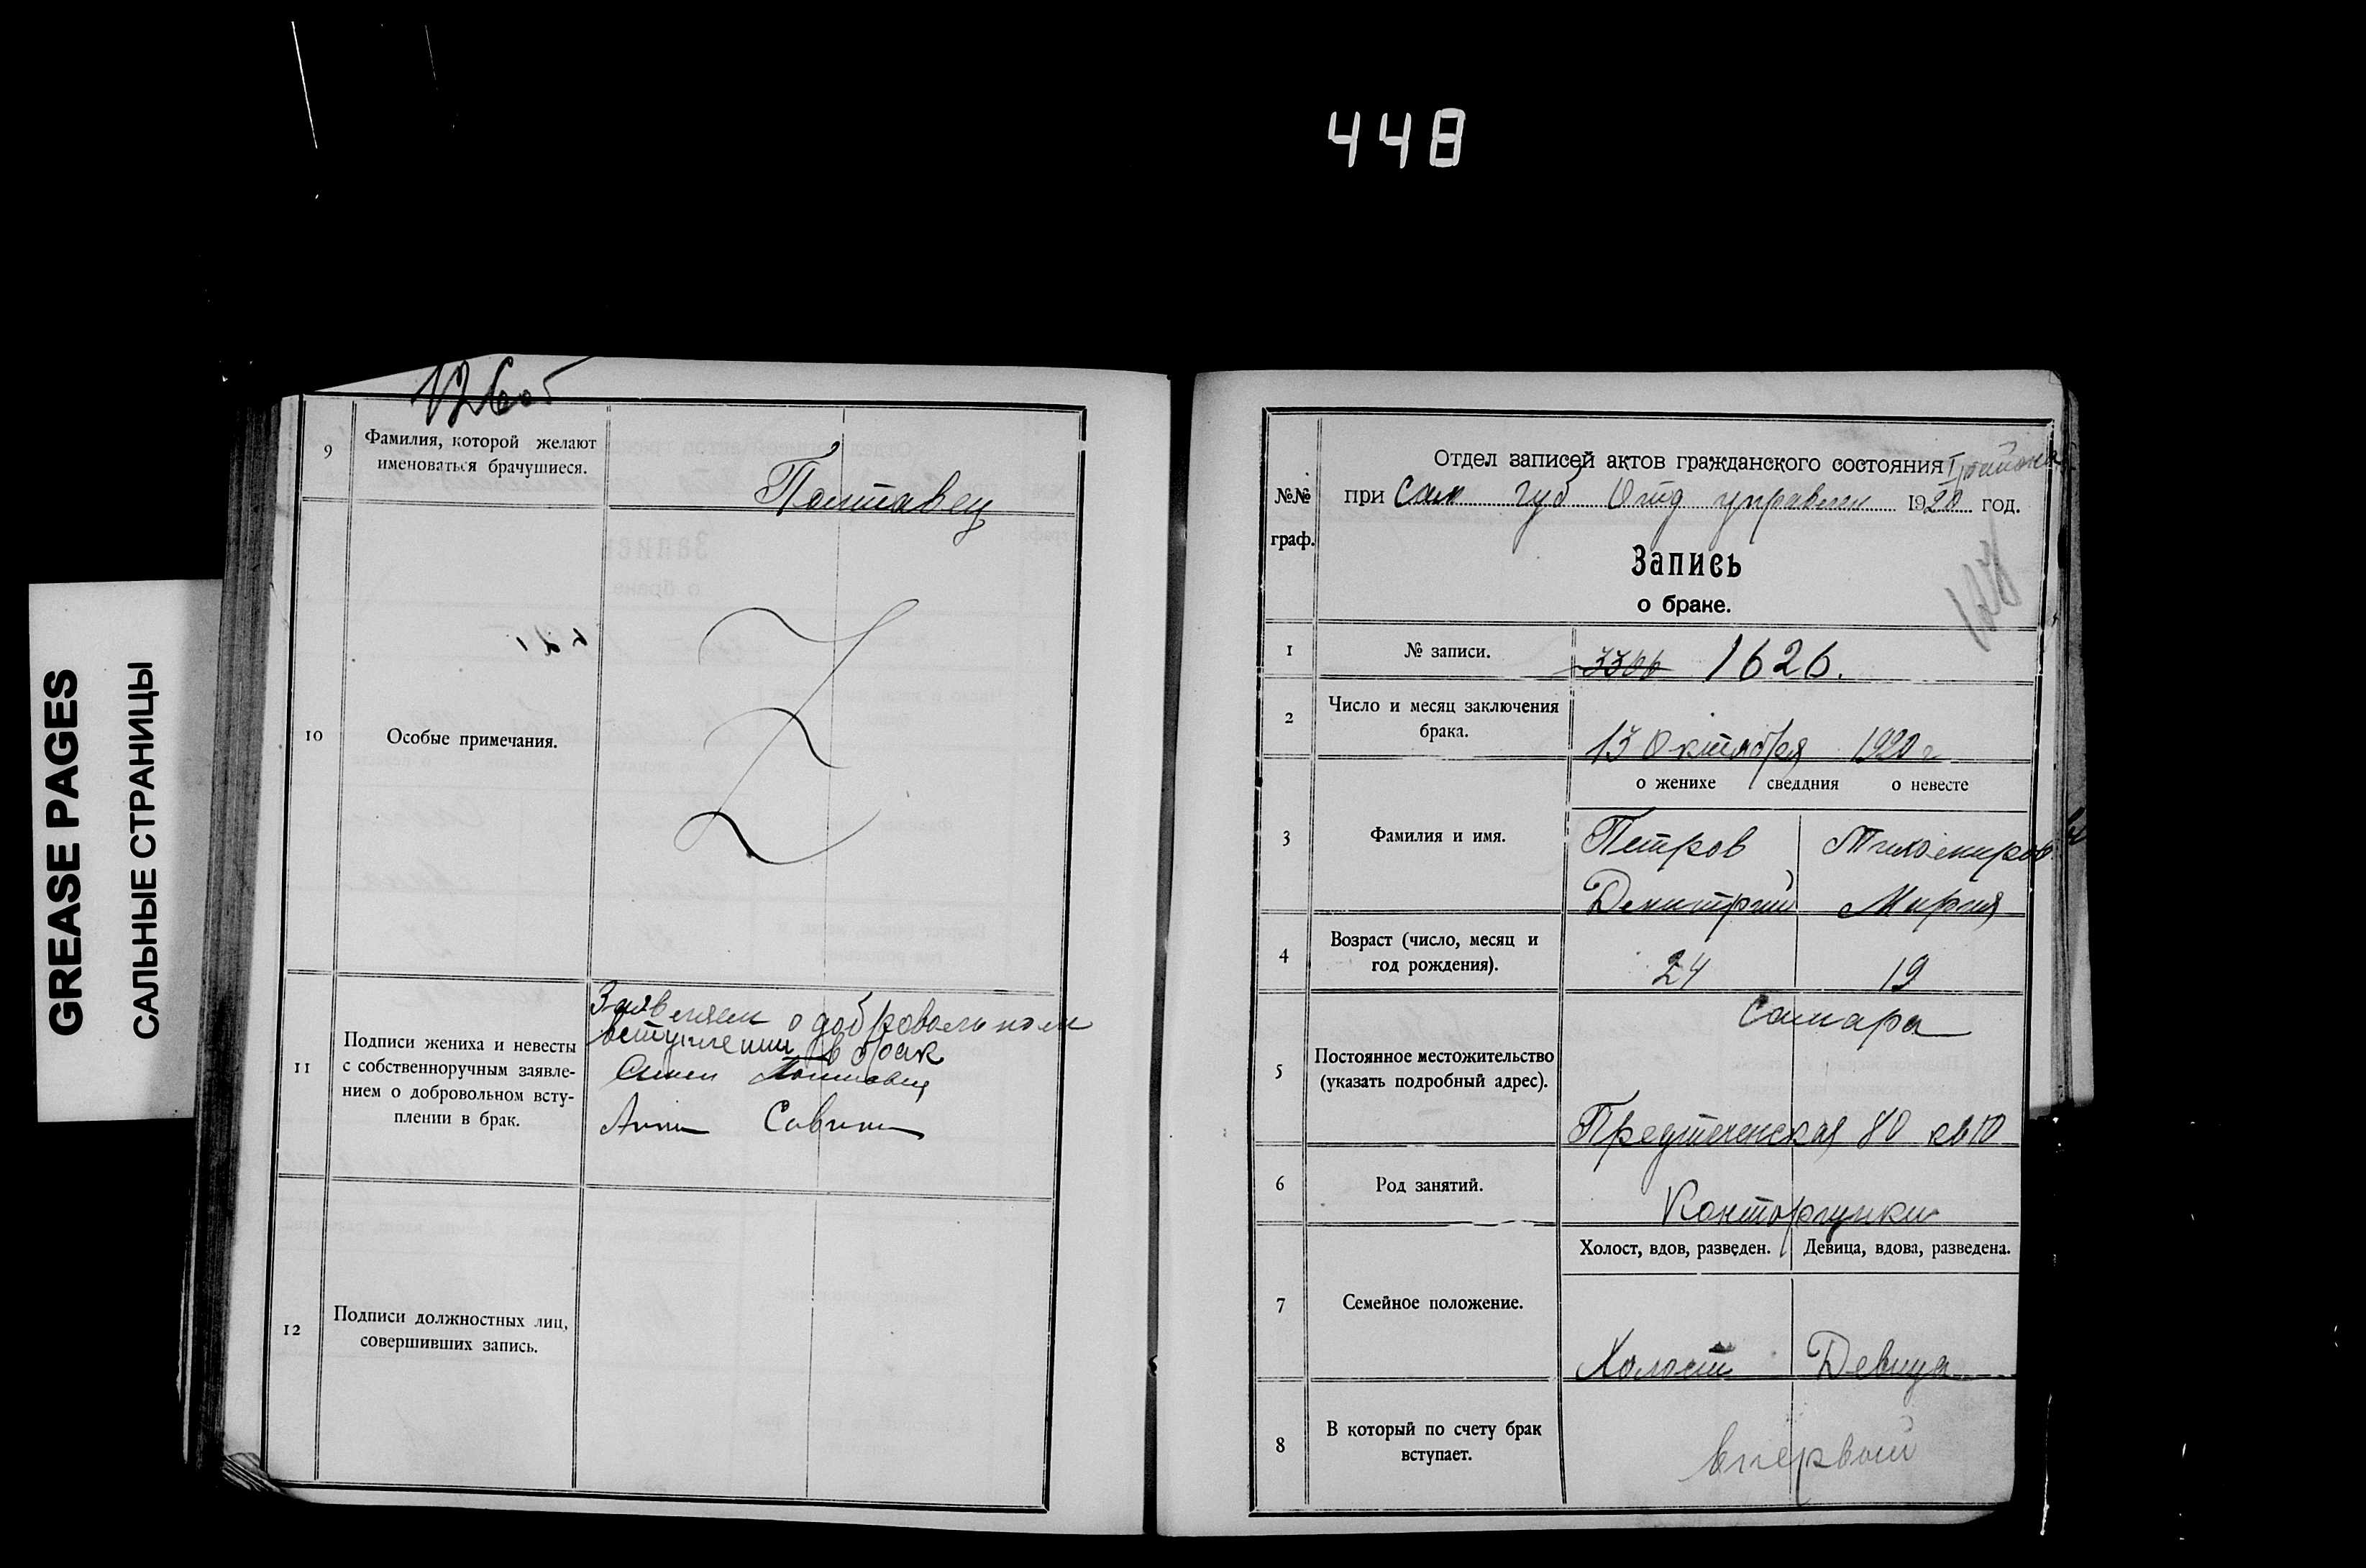 448
GREASE PAGES
САЛЬНЫЕ СТРАНИЦЫ
126об
9
Фамилия, которой желают
именоваться брачущиеся.
Полтавец
10
Особые примечания.
11
Подписи жениха и невесты
с собственноручным заявле-
нием о добровольном всту-
плении в брак.
Заявляем о добровольном
вступлении в брак
Полтавец
Анна Савина
12
Подписи должностных лиц,
совершивших запись.
№№
граф.
Отдел записей актов гражданского состояния I района
при Сам губ Отд управлен 1920 год.
Запись
о браке.
1
№ записи.
3306 1626.
2
Число и месяц заключения
брака.
13 Октября 1920 г
о женихе сведдния о невесте
3
Фамилия и имя.
Петров Тихомиров
Димитрий Мария
4
Возраст (число, месяц и
год рождения).
24 19
5
Постоянное местожительство
(указать подробный адрес).
Самара
Предтеченская 80 кв 10
6
Род занятий.
Конторщики
Холост, вдов, разведен. Девица, вдова, разведена.
7
Семейное положение.
Холост Девица
8
В который по счету брак
вступает.
впервый